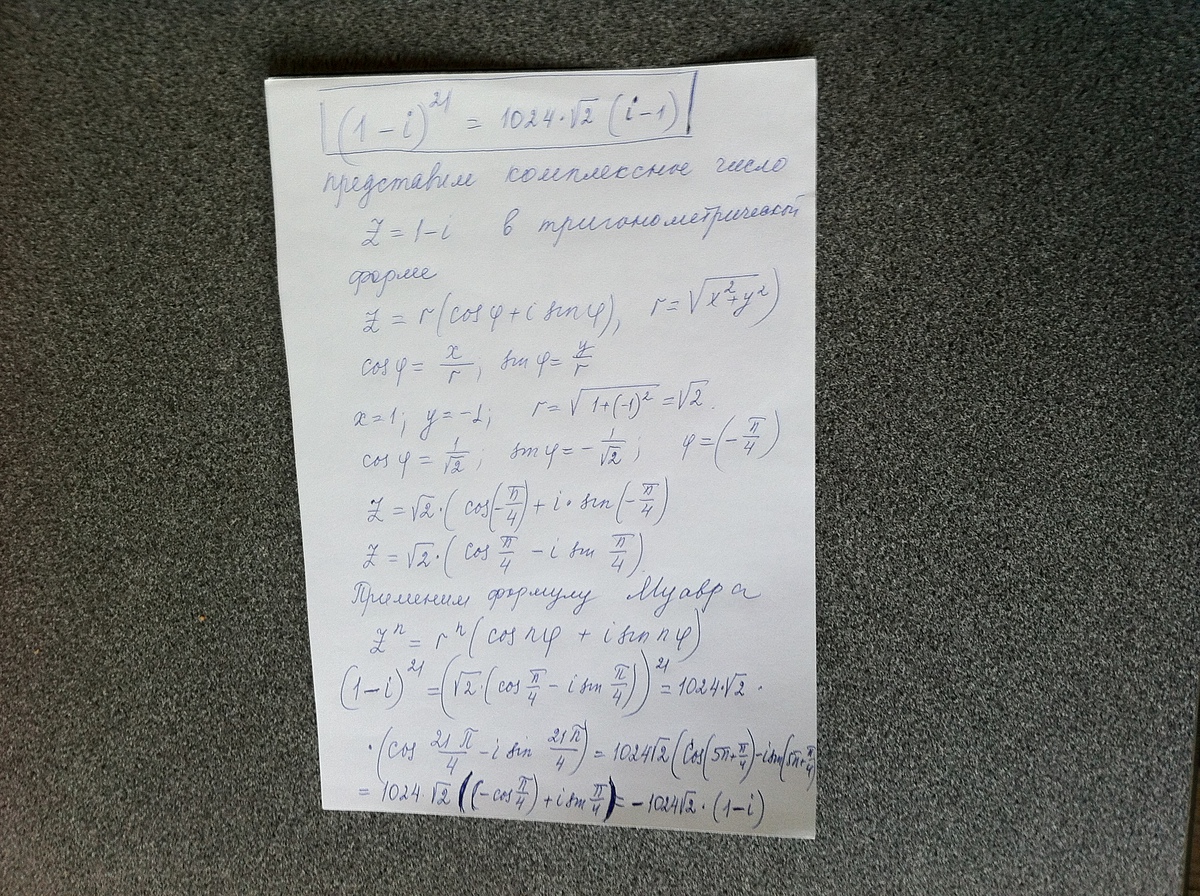 (1-i)^21 = 1024·√2 (i-1)
представим комплексное число
Z = 1-i в тригонометрической
форме
Z = r(cos φ + i sin φ), r = √(x²+y²)
cos φ = x/r; sin φ = y/r
x=1; y=-1; r = √(1+(-1)²) = √2.
cos φ = 1/√2; sin φ = -1/√2; φ = (-π/4)
Z = √2·(cos(-π/4) + i·sin(-π/4)
Z = √2·(cos π/4 - i sin π/4)
Применим формулу Муавра
Z^n = r^n (cos nφ + i sin nφ)
(1-i)^21 = (√2·(cos π/4 - i sin π/4))^21 = 1024·√2·
·(cos 21π/4 - i sin 21π/4) = 1024√2(cos(5π+π/4)-i sin(5π+π/4)
= 1024·√2((-cos π/4)+i sin π/4) = -1024√2·(1-i)